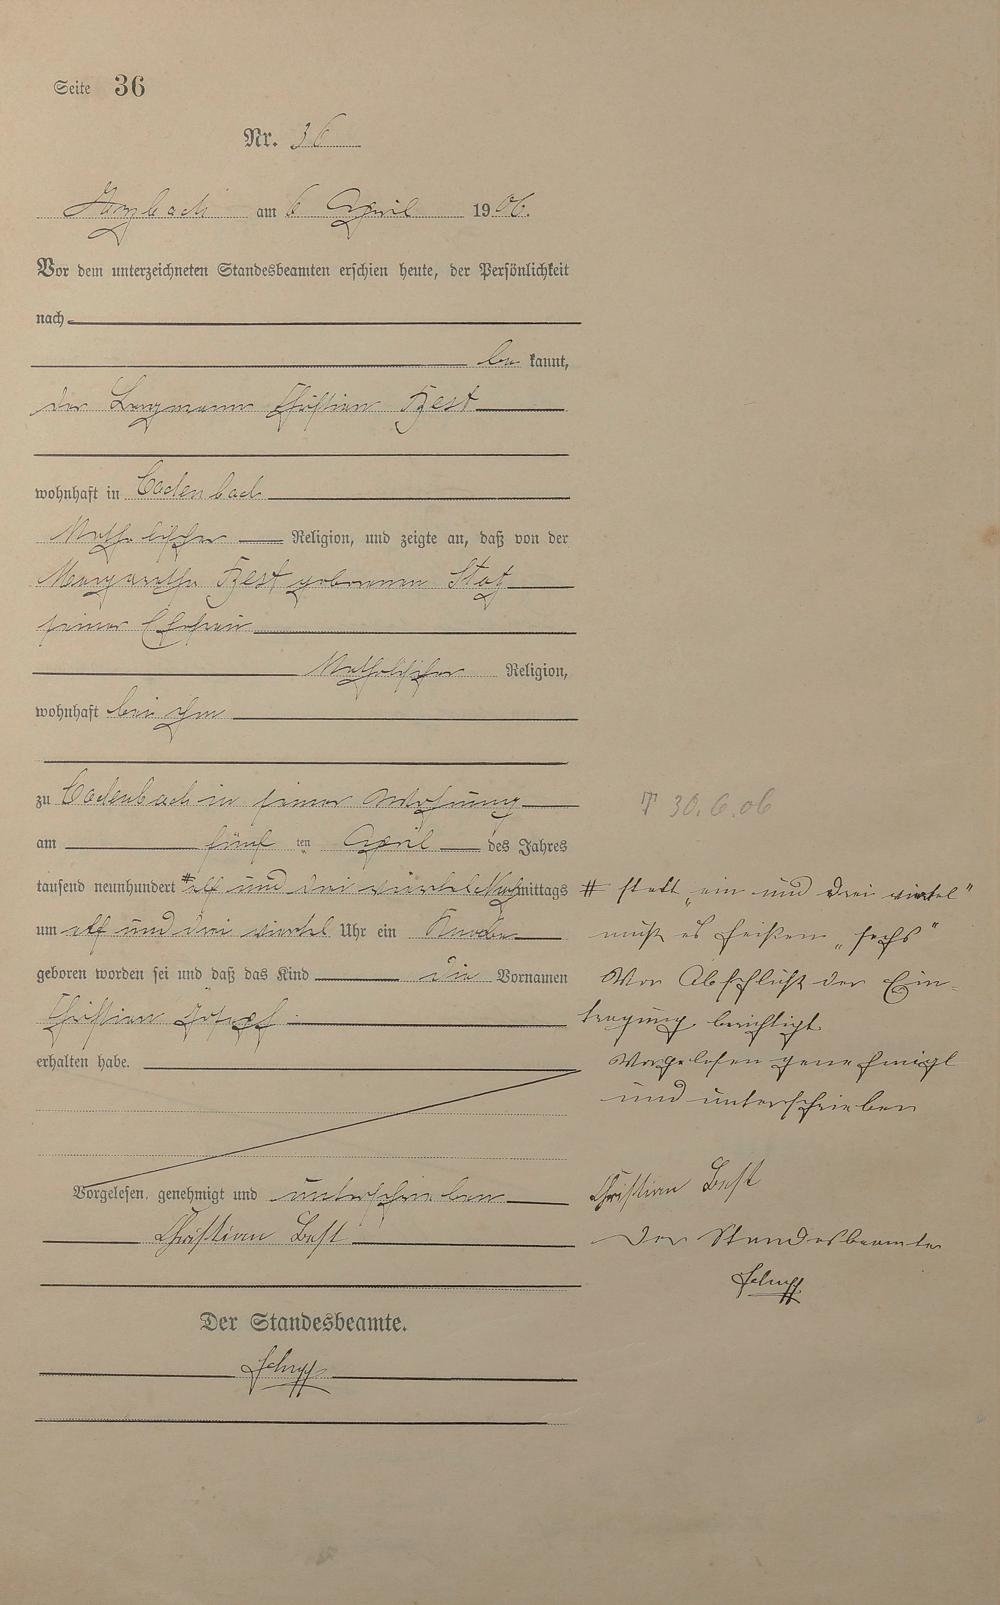 Seite 36
Nr. 36
am 6 April 1906.
Vor dem unterzeichneten Standesbeamten erschien heute, der Persönlichkeit
nach
be kannt,
der Bergmann Christian Best
wohnhaft in Codenbach
Katholischer Religion, und zeigte an, daß von der
Margaretha Best geborenen Stotz
seiner Ehefrau
Katholischer Religion,
wohnhaft bei ihm
zu Codenbach in seiner Wohnung
am fünf ten April des Jahres
tausend neunhundert # elf und drei viertel Nachmittags
um elf und drei viertel Uhr ein Knabe
geboren worden sei und daß das Kind die Vornamen
Christian Josef
erhalten habe.
Vorgelesen, genehmigt und unterschrieben
Christian Best
Der Standesbeamte.
† 30.6.06
# statt „ein und drei viertel"
muß es heißen „sechs"
Vor Abschluß der Ein-
tragung berichtigt.
Vorgelesen genehmigt
und unterschrieben
Christian Best
Der Standesbeamte